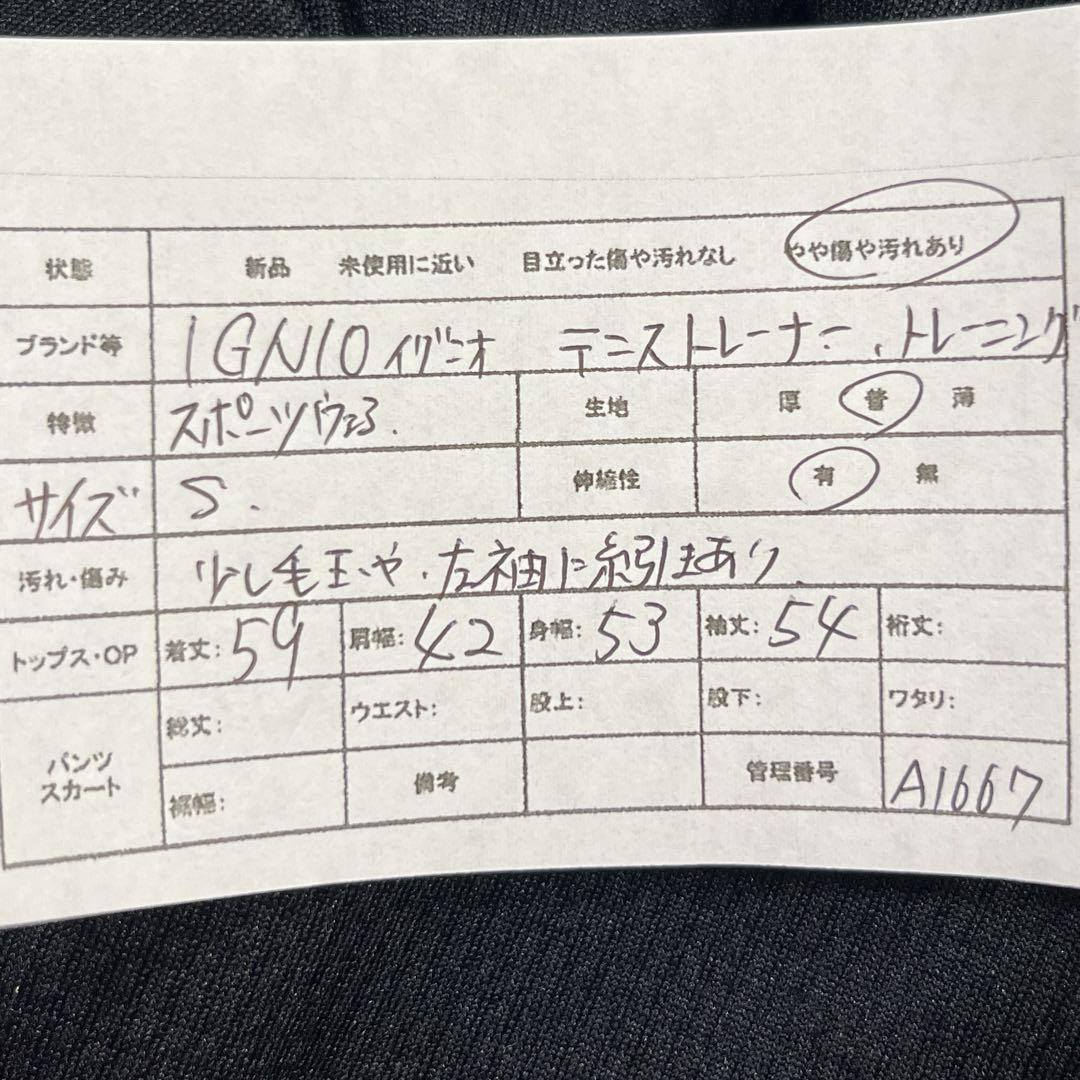 状態 新品 未使用に近い 目立った傷や汚れなし やや傷や汚れあり
ブランド等 IGNIO イグニオ テニストレーナー、トレーニング
特徴 スポーツウェア. 生地 厚 普 薄
サイズ S. 伸縮性 有 無
汚れ・傷み 少し毛玉や、左袖に糸引きあり.
トップス・OP 着丈: 59 肩幅: 42 身幅: 53 袖丈: 54 裄丈:
パンツ スカート 総丈: ウエスト: 股上: 股下: ワタリ:
裾幅: 備考 管理番号 A1667